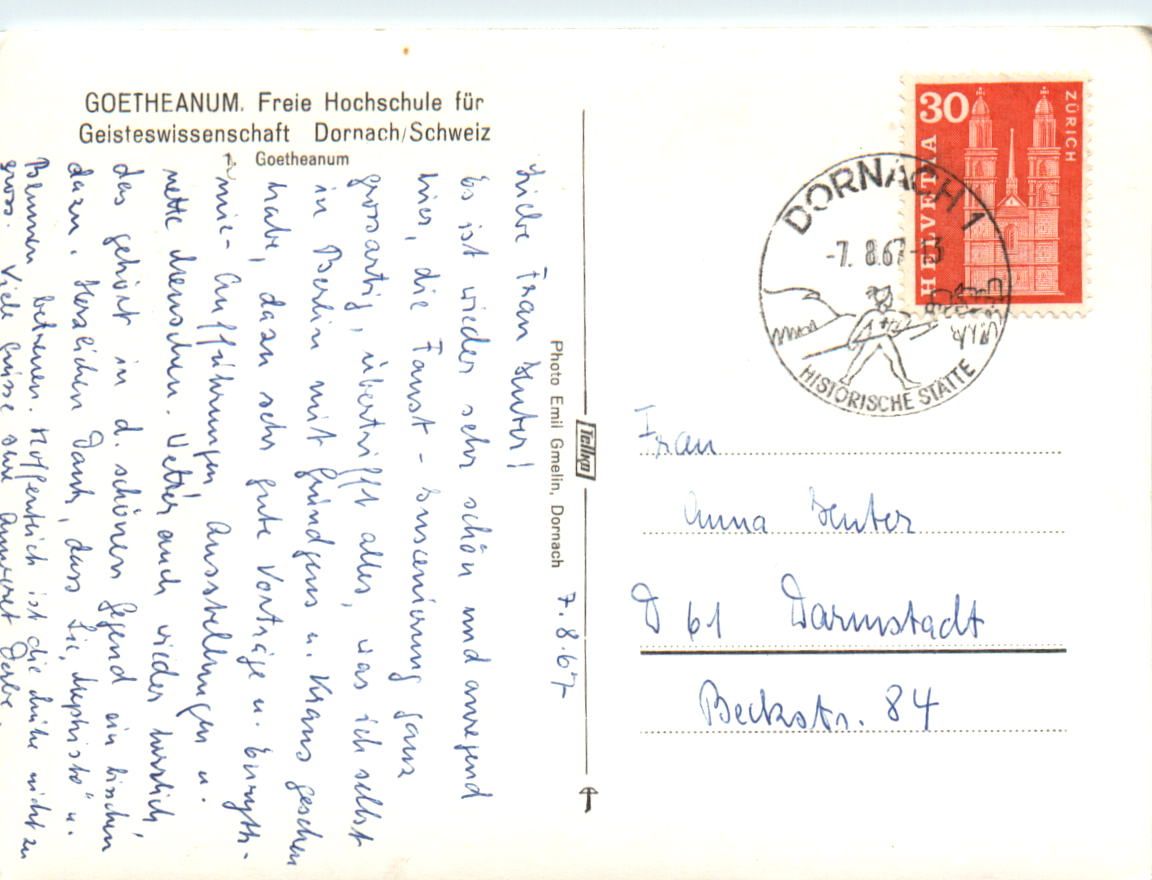 GOETHEANUM. Freie Hochschule für
Geisteswissenschaft Dornach/Schweiz
1. Goetheanum
7.8.67
Liebe Frau
Es ist wieder sehr schön und anregend
hier, die Faust-Inscenierung ganz
grossartig, übertrifft alles, was ich selbst
in Berlin mit Gründgens u. Kraus gesehen
habe, dazu sehr gute Vorträge u. Euryth-
mie-Aufführungen, Ausstellungen u.
nette Menschen. Wetter auch wieder herrlich,
das gehört in d. schönen Gegend ein bischen
dazu. Herzlichen Dank, dass Sie "Mephisto" u.
betreuen. Hoffentlich ist die Mühe nicht zu
gross. Viele Grüsse Ihre
Photo Emil Gmelin, Dornach
Tellko
30
HELVETIA
ZÜRICH
DORNACH 1
-7. 8.67-13
HISTORISCHE STÄTTE
Frau
Anna
D 61 Darmstadt
Beckstr. 84